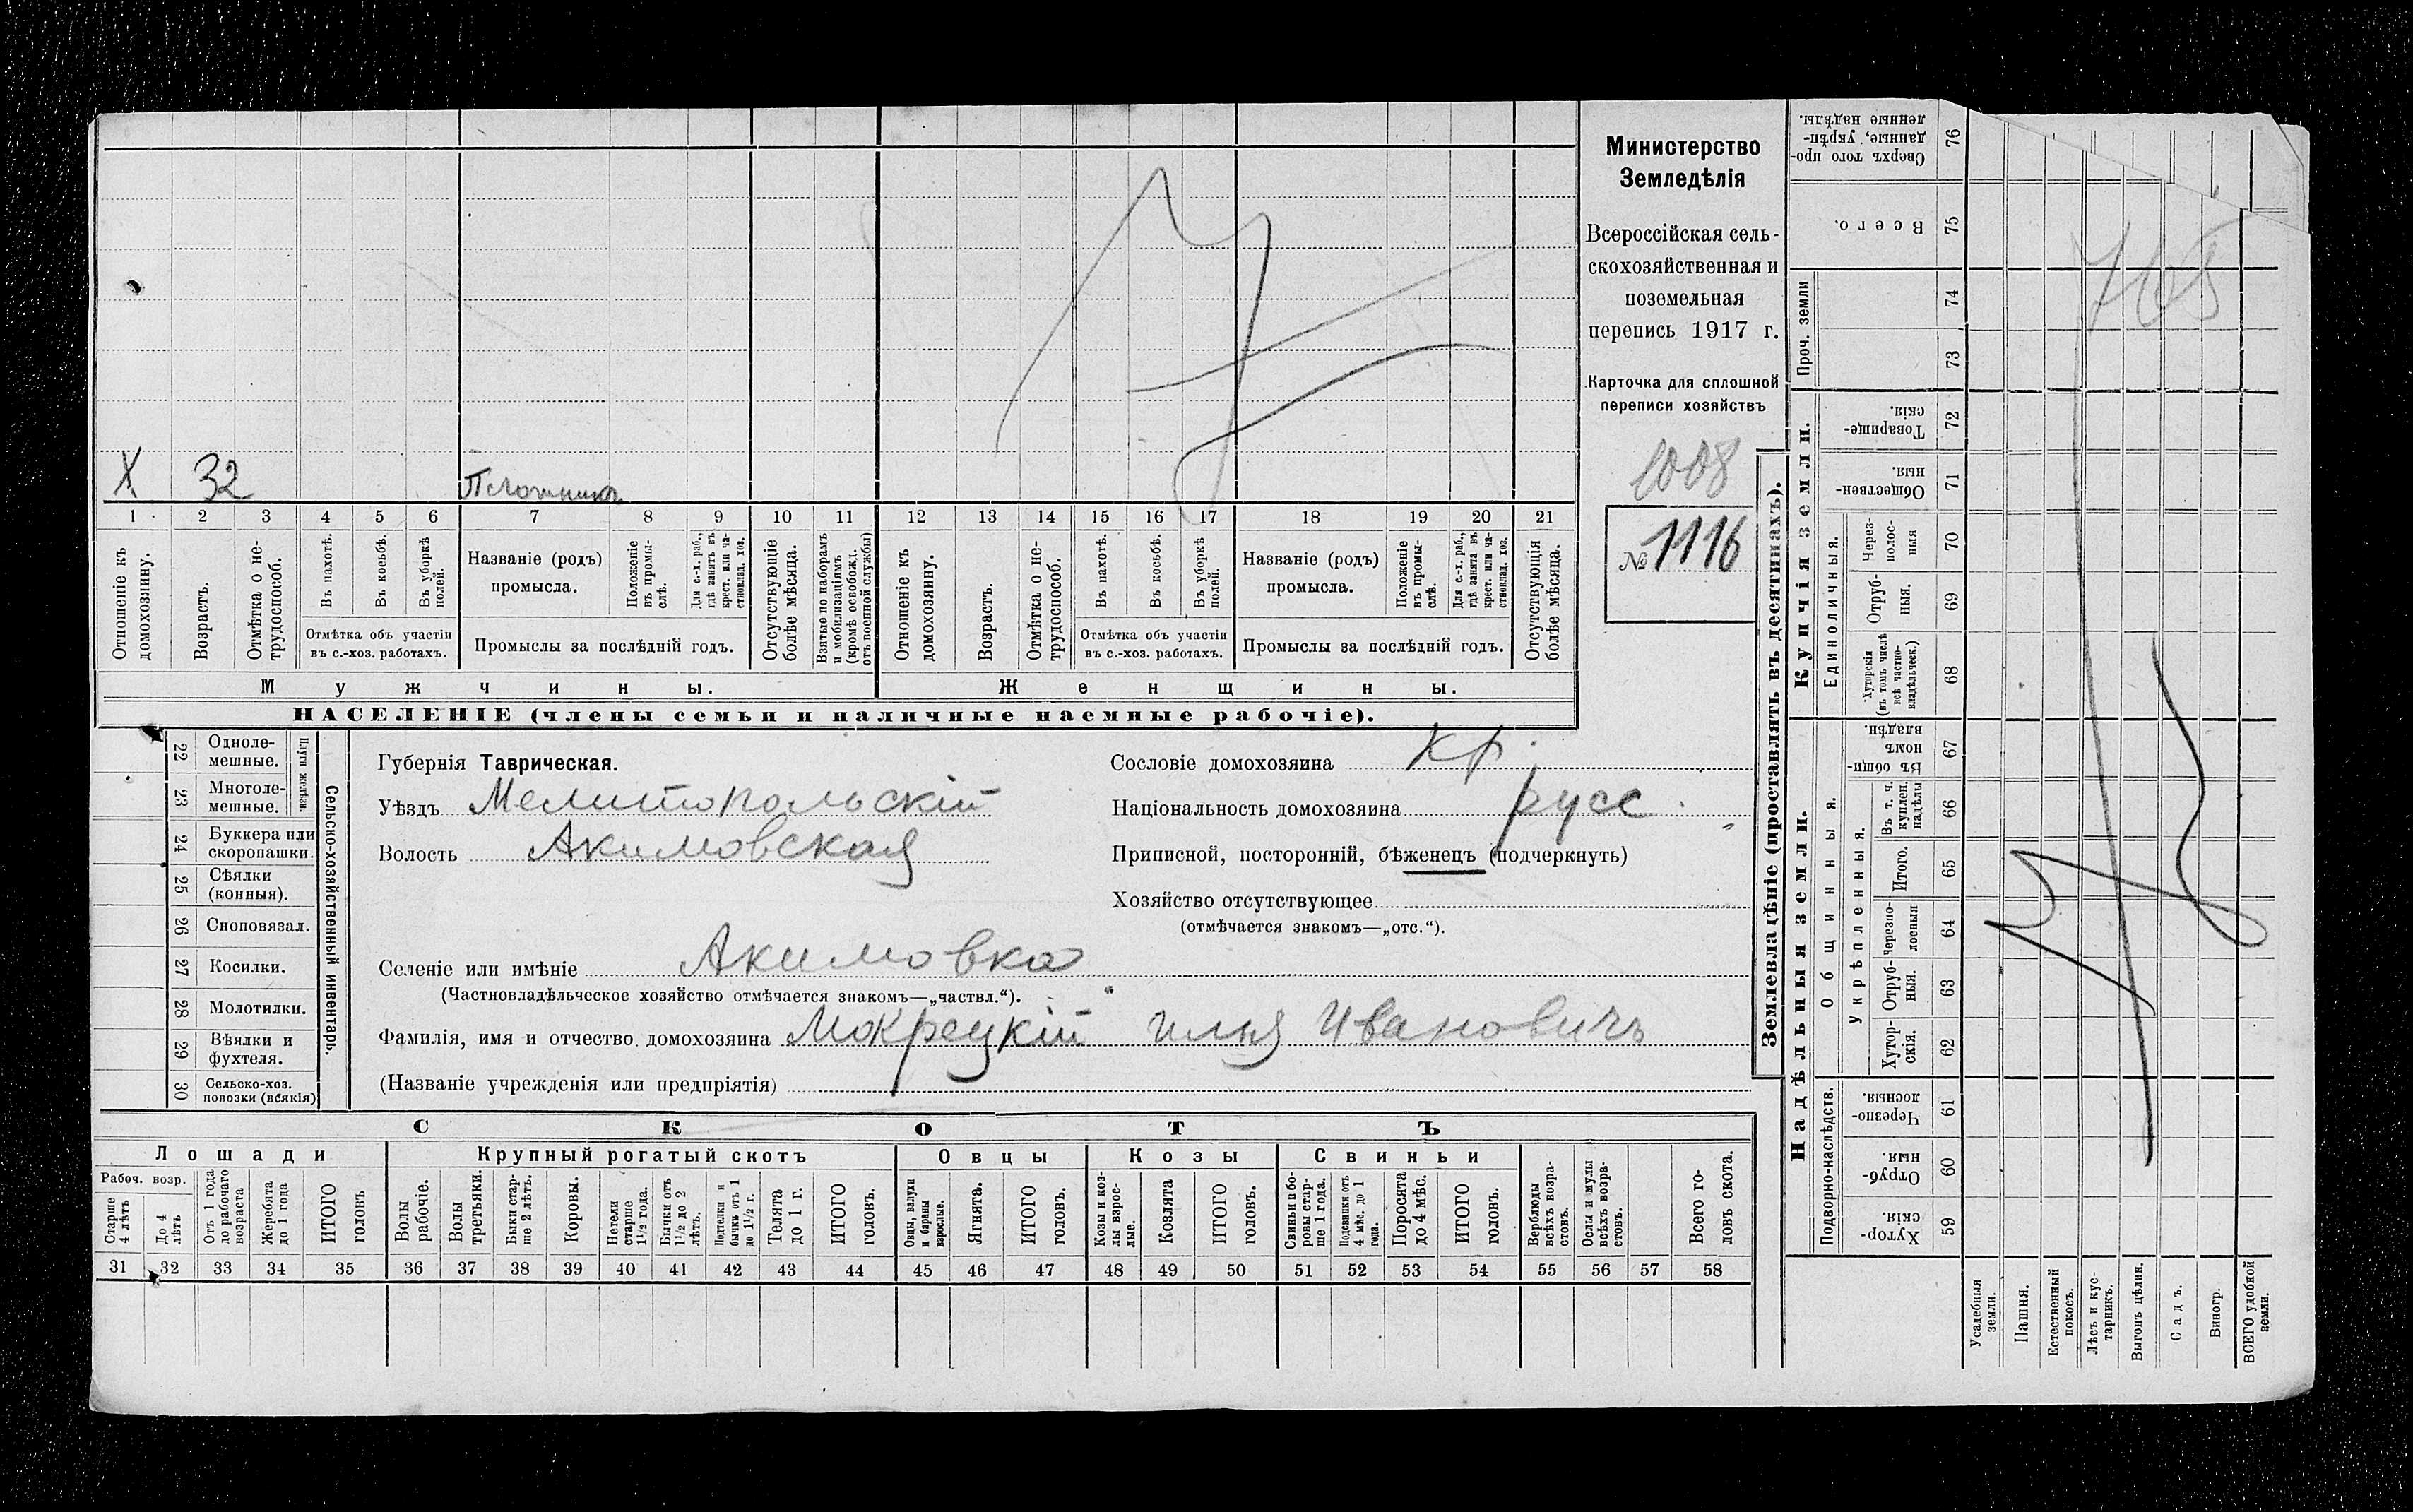 Министерство
Земледѣлія
Всероссійская сель-
скохозяйственная и
поземельная
перепись 1917 г.
Карточка для сплошной
переписи хозяйствъ
1008
№ 1116
X 32 Плотникъ
1 2 3 4 5 6 7 8 9 10 11 12 13 14 15 16 17 18 19 20 21
Отношеніе къ домохозяину.
Возрастъ.
Отмѣтка о не-трудоспособ.
Въ пахотѣ.
Въ косьбѣ.
Въ уборкѣ полей.
Отмѣтка объ участіи
въ с.-хоз. работахъ.
Названіе (родъ)
промысла.
Положеніе въ промы-слѣ.
Для с.-х. раб., гдѣ занятъ въ крест. или ча-стновлад. хоз.
Промыслы за послѣдній годъ.
Отсутствующіе болѣе мѣсяца.
Взятые по наборамъ и мобилизаціямъ (кромѣ освобожд. отъ военной службы)
Отношеніе къ домохозяину.
Возрастъ.
Отмѣтка о не-трудоспособ.
Въ пахотѣ.
Въ косьбѣ.
Въ уборкѣ полей.
Отмѣтка объ участіи
въ с.-хоз. работахъ.
Названіе (родъ)
промысла.
Положеніе въ промы-слѣ.
Для с.-х. раб., гдѣ занята въ крест. или ча-стновлад. хоз.
Промыслы за послѣдній годъ.
Отсутствующія болѣе мѣсяца.
Мужчины.
Женщины.
НАСЕЛЕНІЕ (члены семьи и наличные наемные рабочіе).
Сельско-хозяйственный инвентарь.
Плуги желѣзн.
22 Одноле-мешные.
23 Многоле-мешные.
24 Буккера или скоропашки.
25 Сѣялки (конныя).
26 Сноповязал.
27 Косилки.
28 Молотилки.
29 Вѣялки и фухтеля.
30 Сельско-хоз. повозки (всякія)
Губернія Таврическая.
Уѣздъ Мелитопольскій
Волость Акимовская
Сословіе домохозяина кр.
Національность домохозяина русс
Приписной, посторонній, бѣженецъ (подчеркнуть)
Хозяйство отсутствующее
(отмѣчается знакомъ—„отс.“).
Селеніе или имѣніе Акимовка
(Частновладѣльческое хозяйство отмѣчается знакомъ—„частвл.“).
Фамилія, имя и отчество домохозяина Мокрецкій Илья Ивановичъ
(Названіе учрежденія или предпріятія)
СКОТЪ
Лошади
Рабоч. возр.
Старше 4 лѣтъ
До 4 лѣтъ
Отъ 1 года до рабочаго возраста
Жеребята до 1 года
ИТОГО головъ
Крупный рогатый скотъ
Волы рабочіе.
Волы третьяки.
Быки стар-ше 2 лѣтъ.
Коровы.
Нетели старше 1½ года.
Бычки отъ 1½ до 2 лѣтъ.
Подтелки и бычки отъ 1 до 1½ г.
Телята до 1 г.
ИТОГО головъ.
Овцы
Овцы, валухи и бараны взрослые.
Ягнята.
ИТОГО головъ.
Козы
Козы и коз-лы взрос-лые.
Козлята
ИТОГО головъ.
Свиньи
Свиньи и бо-ровы стар-ше 1 года.
Подсвинки отъ 4 мѣс. до 1 года.
Поросята до 4 мѣс.
ИТОГО головъ.
Верблюды всѣхъ возра-стовъ.
Ослы и мулы всѣхъ возра-стовъ.
Всего го-ловъ скота.
31 32 33 34 35 36 37 38 39 40 41 42 43 44 45 46 47 48 49 50 51 52 53 54 55 56 57 58
Землевладѣніе (проставлять въ десятинахъ).
Надѣльныя земли.
Подворно-наслѣдств.
59 Хутор-скія.
60 Отруб-ныя.
61 Черезпо-лосныя.
Общинныя.
Укрѣпленныя.
62 Хутор-скія.
63 Отруб-ныя.
64 Черезпо-лосныя
65 Итого.
66 Въ т. ч. куплен. надѣлы
67 Въ общин-номъ владѣн.
Купчія земли.
Единоличныя.
68 Хуторскія (въ томъ числѣ всѣ частно-владѣльческ.)
69 Отруб-ныя.
70 Через-полос-ныя
71 Обществен-ныя.
72 Товарище-скія.
Проч. земли
73
74
75 Всего.
76 Сверхъ того про-данные, укрѣп-ленные надѣлы.
Усадебныя земли.
Пашня.
Естественный покосъ.
Лѣсъ и кус-тарникъ.
Выгонъ цѣлин.
Садъ.
Виногр.
ВСЕГО удобной земли.